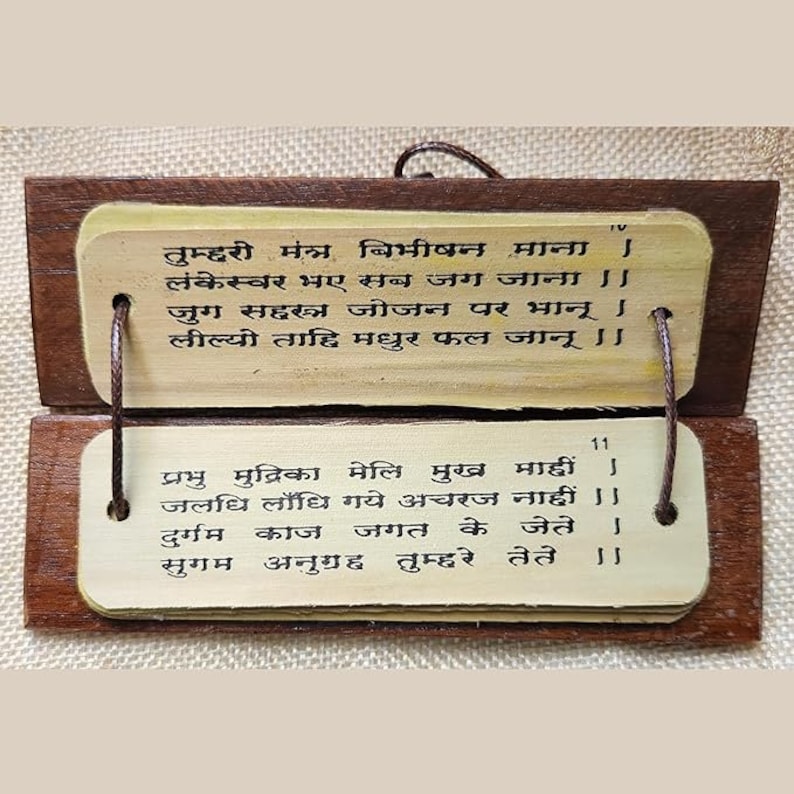 10
तुम्हरो मंत्र बिभीषन माना ।
लंकेस्वर भए सब जग जाना ।।
जुग सहस्त्र जोजन पर भानू ।
लील्यो ताहि मधुर फल जानू ।।
11
प्रभु मुद्रिका मेलि मुख माहीं ।
जलधि लाँधि गये अचरज नाहीं ।।
दुर्गम काज जगत के जेते ।
सुगम अनुग्रह तुम्हरे तेते ।।